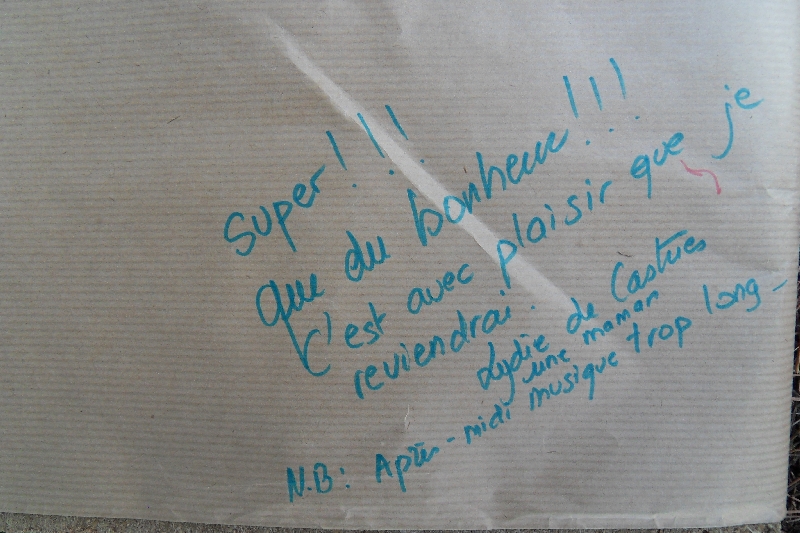 Super!!!
que du bonheur!!!
C'est avec plaisir que je
reviendrai.
Lydie de Castries
une maman
N.B: Après-midi musique trop long-